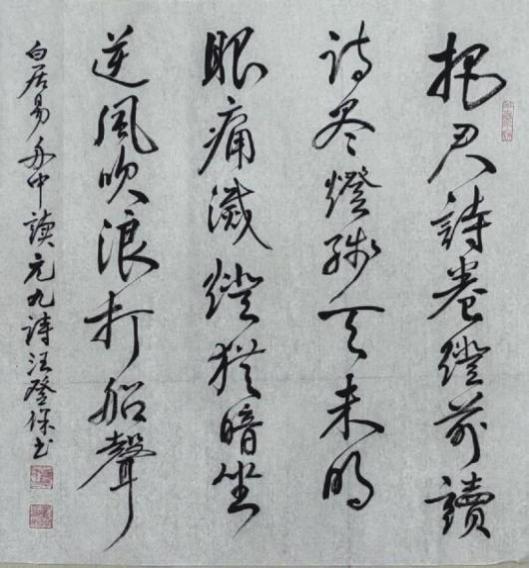 把君詩卷燈前讀
诗尽燈残天未明
眼痛滅燈猶暗坐
逆風吹浪打船聲
白居易舟中讀元九詩汪登保书